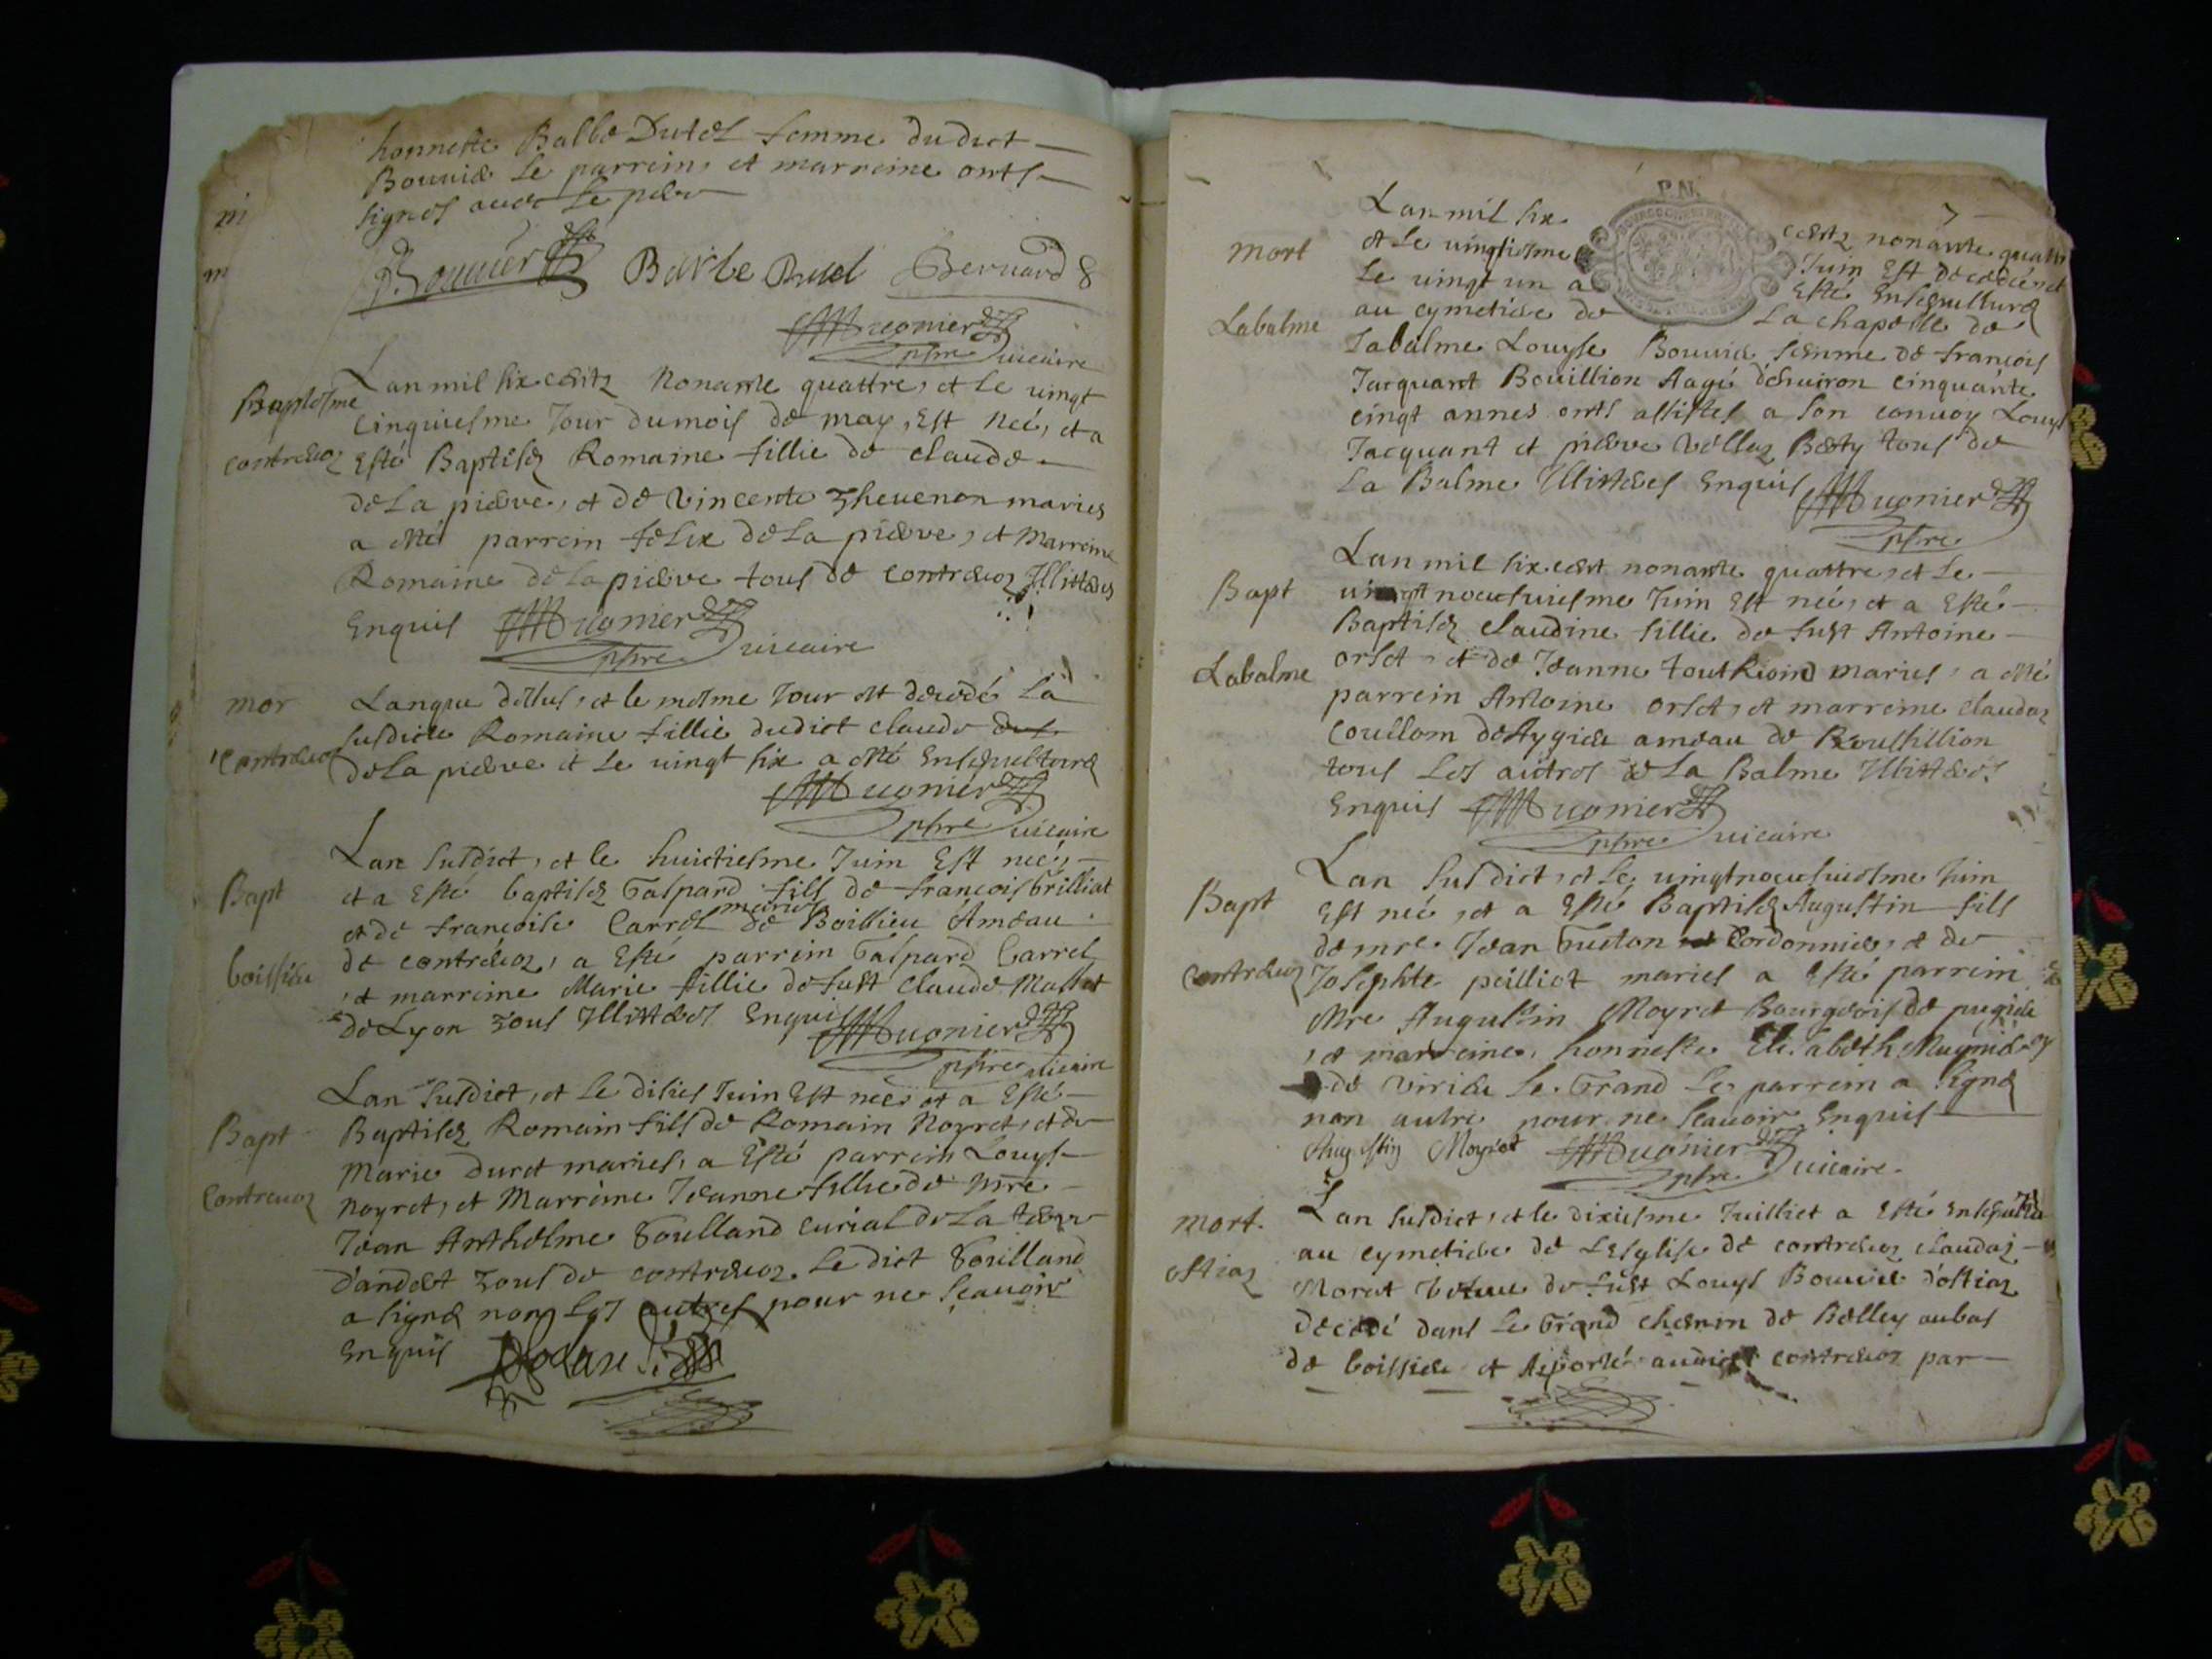 honneste Balbe Dutel femme dudict
Bouvié le parrein, et marreine onts
signes avec le père
Bouvier Barbe Bernard
Mugonier
pbre vicaire
Baptesme
Contrevoz
Lan mil six centz nonante quattre, et le vingt
cinquiesme Jour du mois de may, Est neé, et a
Esté Baptisez Romaine fillie de claude
de La pierre, et de Vincente Thevenon maries
a esté parrein felix de La pierre, et Marreine
Romaine de La pierre tous de contrevoz Illitteres
Enquis Mugonier
pbre vicaire
mor
Contrevoz
Lanque dessus, et le mesme Jour est decedé La
susdicte Romaine fillie dudict claude
de La pierre et le vingt six a esté Ensepulturé
Mugonier
pbre vicaire
Bapt
boissieu
Lan susdict, et le huictiesme Juin Est neé,
et a Esté baptisez Gaspard fils de françois Grilliat
et de françoise Carrel maries de Boissieu Ameau
de contrevoz, a Esté parrein Gaspard Carrel
et marreine Marie fillie de fust Claude Mallet
de Lyon Tous Illitteres Enquis Mugonier
pbre vicaire
Bapt
Contrevoz
Lan susdict, et le disies Juin Est neé et a Esté
Baptisez Romain fils de Romain Noyret, et de
Marie Duret maries, a Esté parrein Louys
Noyret, et Marreine Jeanne fillie de Mre
Jean Anthelme Goulland curial de La terre
d'andert Tous de contrevoz. Le dict Goilland
a signé non les autres pour ne sçavoir
Enquis
7
mort
Labalme
Lan mil six centz nonante quattre
et le vingtiesme Juin Est decedée et
le vingt un a Esté Ensepulturé
au cymetiere de La chapelle de
Labalme Louyse Bouvié femme de françois
Jacquant Bouillion Aagé d'environ cinquante
cinqt annes onts assistes a son convoy Louys
Jacquant et pierre Vellaz Bety tous de
La Balme Illitteres Enquis Mugonier
pbre
Bapt
Labalme
Lan mil six cent nonante quattre, et Le
vingt noeufviesme Juin Est neé, et a Esté
Baptisez Claudine fillie de fust Antoine
Orset, et de Jeanne maries, a esté
parrein Antoine Orset, et marreine Claudaz
Coullom ameau de Roussillion
tous Les autres de La Balme Illitteres
Enquis Mugonier
pbre vicaire
Bapt
Contrevoz
Lan susdict, et le vingtnoeufviesme Juin
Est neé, et a Esté Baptisez Augustin fils
de mre Jean Cordonnier, et de
Josephte peilliot maries a Esté parrein
Mre Augustin Moyret Bourgeois de pugieu
et marreine, honneste Elisabeth
de Virieu Le Grand Le parrein a signé
non autre pour ne sçavoir Enquis
Augustin Moyret Mugonier
pbre vicaire
mort.
Ostiaz
Lan susdict, et le dixiesme Juilliet a Esté Ensepulturé
au cymetiere de L'esglise de contrevoz Claudaz
Morat vefvve de fust Louys Bouvié d'ostiaz
decedé dans le Grand chemin de Belley aubas
de boissieu et Aporté contrevoz par